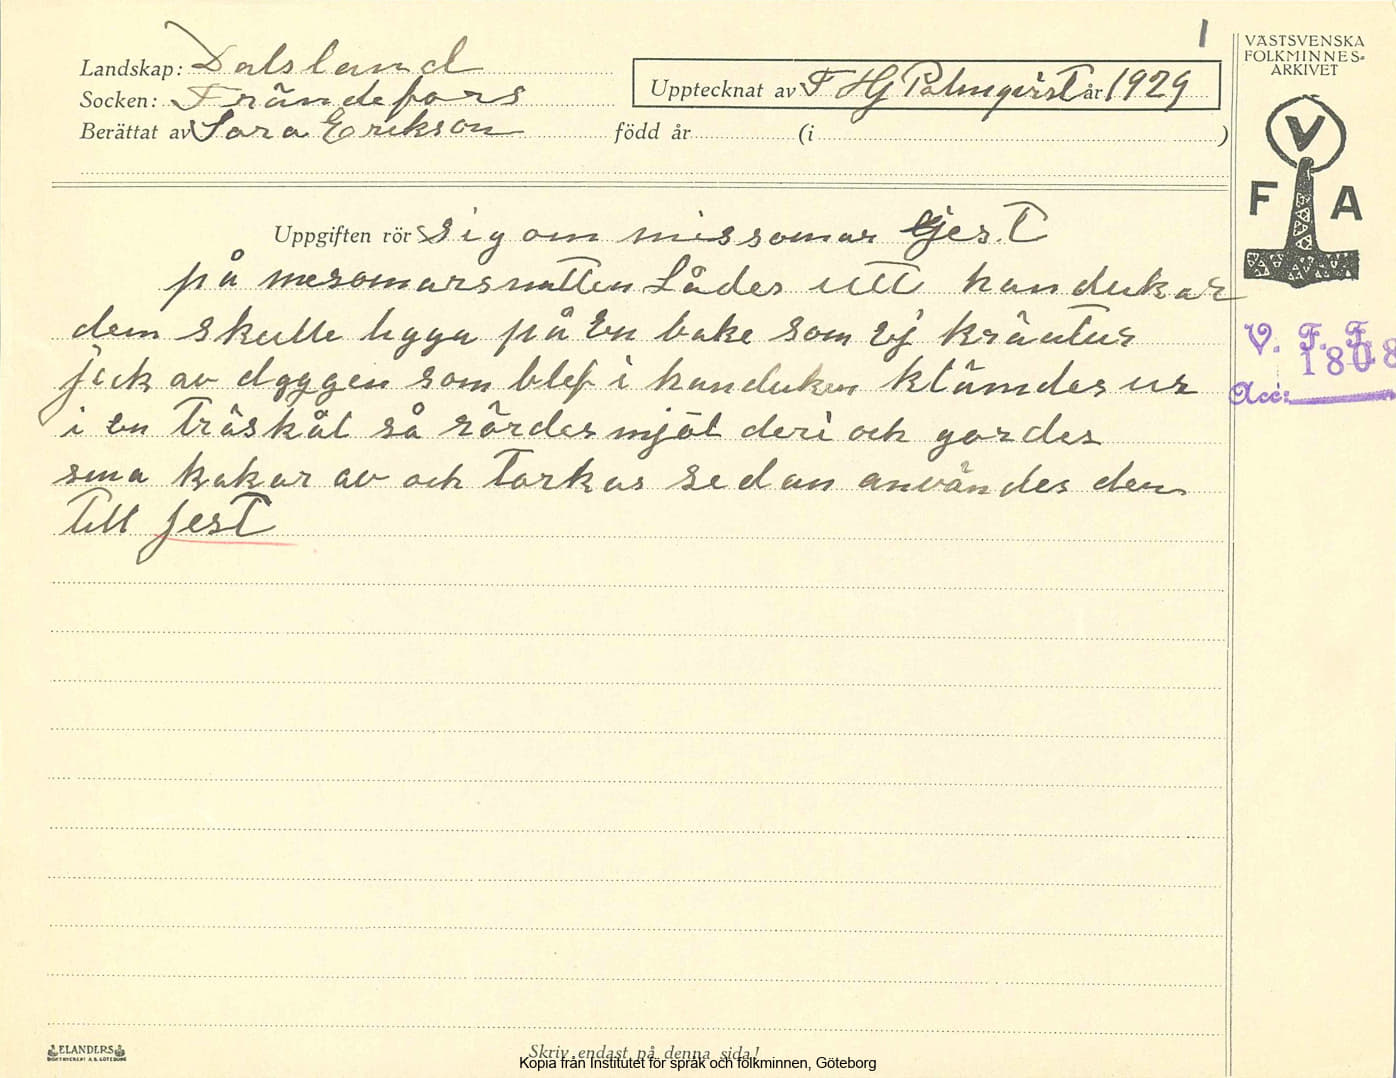 1
VÄSTSVENSKA
FOLKMINNES-
ARKIVET
Landskap: Dalsland
Socken: Frändefors
Upptecknat av F HG Palmqvist år 1929
Berättat av Sara Erikson född år (i )
V
F A
Uppgiften rör sig om missomar Gjest
på mesomarsnatten Lådes utt handukar
dem skulle ligga på en bake som ej kräatur
jick av dyggen som blef i handuken klämdes ur
i en Träskål så rördes mjöl deri och gordes
sma kakar av och Torkas sedan användes den
Till jest
V. F. F.
1808
Acc:
ELANDERS
BOKTRYCKERI A.B. GÖTEBORG
Skriv endast på denna sida!
Kopia från Institutet för språk och folkminnen, Göteborg